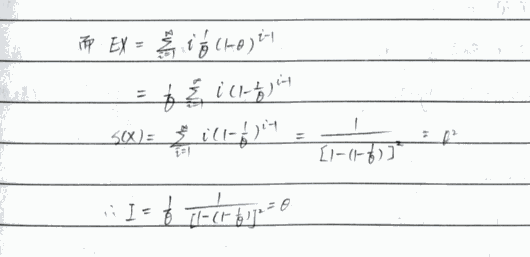 而 EX = ∑_{i=1}^{∞} i 1/θ (1-θ)^{i-1}
= 1/θ ∑_{i=1}^{∞} i (1-1/θ)^{i-1}
S(X) = ∑_{i=1}^{∞} i (1-1/θ)^{i-1} = 1/[1-(1-1/θ)]^2 = θ^2
∴ I = 1/θ 1/[1-(1-1/θ)]^2 = θ